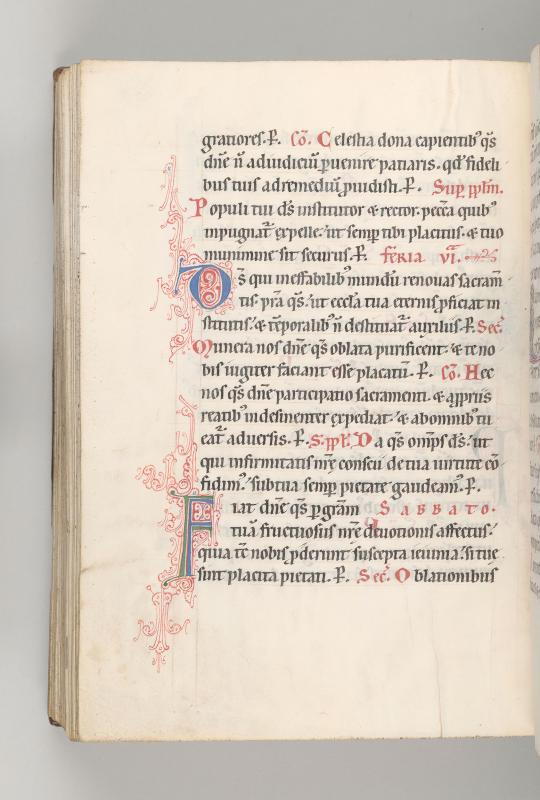 gratiores. P. Cō. Celestia dona capientib' q̄s
dn̄e n̄ ad iudiciū puenire patiaris. qd' fideli
bus tuis ad remediū puidisti. P. Sup pplm̄.
Populi tui d̄s institutor & rector. pecc̄a quib'
inpugnat̄ expelle. ut semp tibi placitus. & tuo
munimine sit securus. P. feria vi.
Ds̄ qui ineffabilib' mundū renouas sacram̄
tis. pr̄a q̄s. ut eccl̄a tua eternis pficiat in
stitutis. & tēporalib' n̄ destituat̄ auxiliis. P. Sec̄.
Munera nos dn̄e q̄s oblata purificent. & te no
bis iugiter faciant esse placatū. P. Cō. Hec
nos q̄s dn̄e participatio sacramenti. & a ppriis
reatib' indesinenter expediat. & ab omnib' tu
eat̄ aduersis. P. S. ppl. Da q̄s omp̄s d̄s. ut
qui infirmitatis nr̄e conscii de tua uirtute cō
fidim'. sub tua semp pietate gaudeam'. P.
Fiat dn̄e q̄s p gr̄am SABBATO.
tuā fructuosus nr̄e deuotionis affectus.
quia tc̄ nobis pderunt suscepta ieiunia. si tue
sint placita pietati. P. Sec̄. Oblationibus